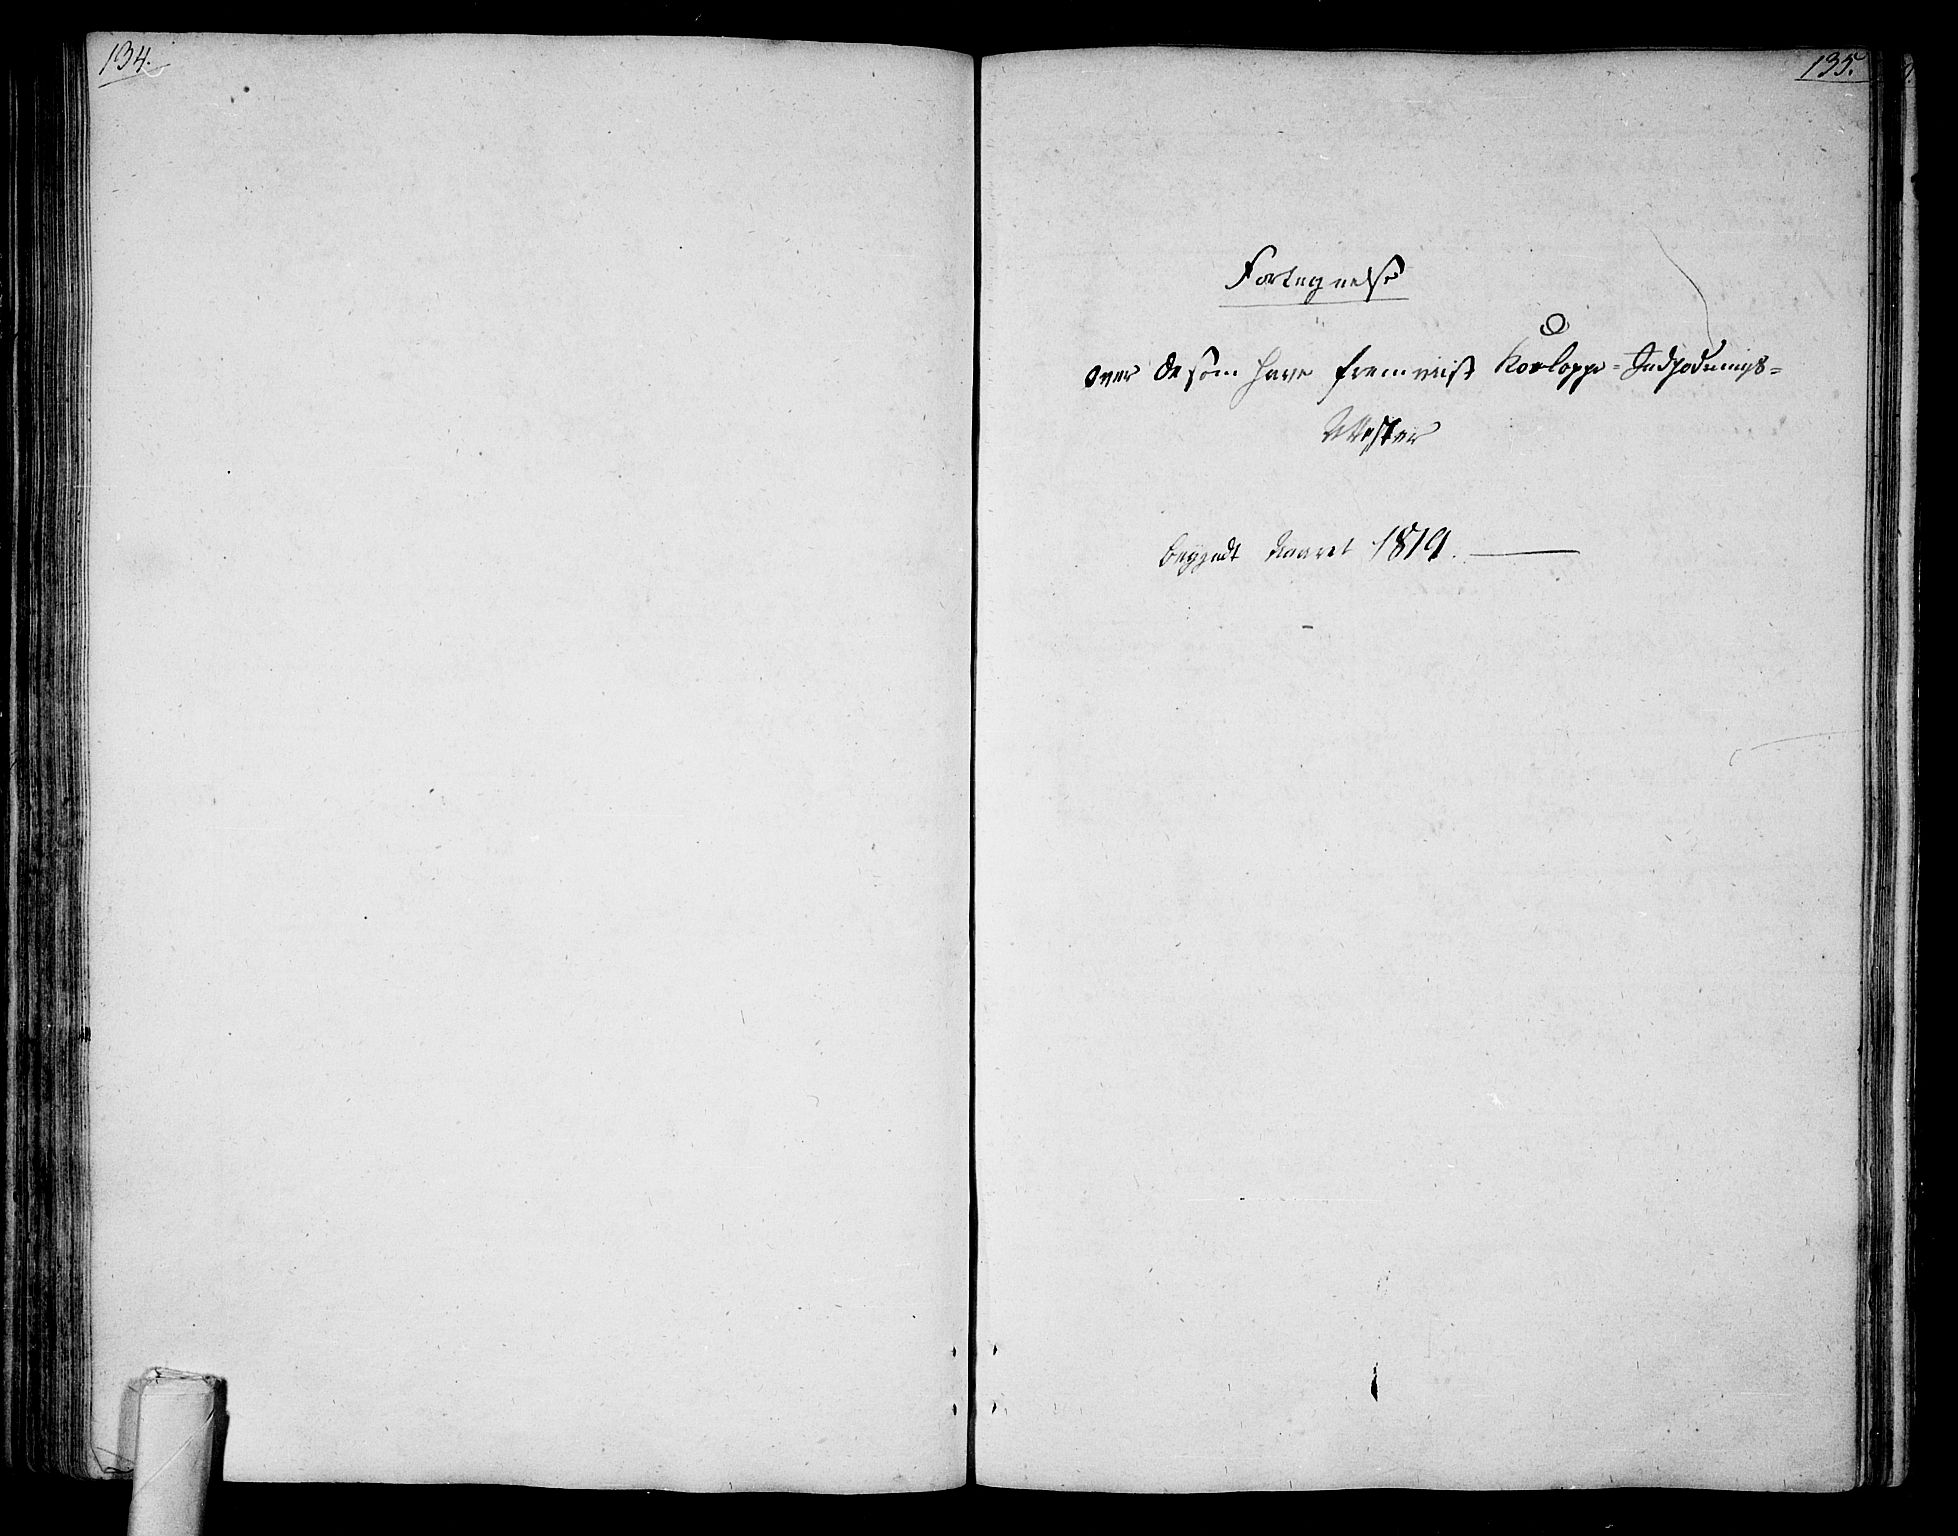 134.
135.
Fortegnelse
over de som have fremviist Kokoppe=Indpodnings=
Attester
begyndt Aaret 1819.